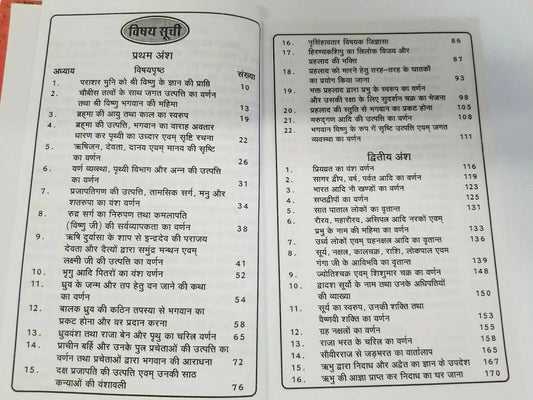 विषय सूची
प्रथम अंश
अध्याय विषयपृष्ठ संख्या
1. पराशर मुनि को श्री विष्णु के ज्ञान की प्राप्ति 10
2. चौबीस तत्वों के साथ जगत उत्पत्ति का वर्णन
तथा श्री विष्णु भगवान की महिमा 13
3. ब्रह्मा की आयु तथा काल का स्वरुप 19
4. ब्रह्मा की उत्पत्ति, भगवान का वाराह अवतार
धारण कर पृथ्वी का उध्दार एवम् सृष्टि रचना 22
5. ऋषिजन, देवता, दानव एवम् मानव की सृष्टि
का वर्णन 26
6. वर्ण व्यवस्था, पृथ्वी विभाग और अन्न की उत्पत्ति
का वर्णन 31
7. प्रजापतिगण की उत्पत्ति, तामसिक सर्ग, मनु और
शतरुपा का वंश वर्णन 34
8. रुद्र सर्ग का निरुपण तथा कमलापति
(विष्णु जी) की सर्वव्यापकता का वर्णन 38
9. ऋषि दुर्वासा के शाप से इन्द्रदेव की पराजय
देवता और दैत्यों द्वारा समुद्र मन्थन एवम्
लक्ष्मी जी की उत्पत्ति का वर्णन 41
10. भृगु आदि पितरों का वंश वर्णन 52
11. ध्रुव के जन्म और तप हेतु वन जाने की कथा
का वर्णन 54
12. बालक ध्रुव की कठिन तपस्या से भगवान का
प्रकट होना और वर प्रदान करना 58
13. ध्रुववंश तथा राजा बेन और पृथु का चरित्र वर्णन 65
14. प्राचीन बर्हि और उनके पुत्र प्रचेताओं की उत्पत्ति का
वर्णन तथा प्रचेताओं द्वारा भगवान की आराधना 72
15. दक्ष प्रजापति की उत्पत्ति एवम् उनकी साठ
कन्याओं की वंशावली 76
16. नृसिंहावतार विषयक जिज्ञासा 86
17. हिरण्यकशिपु का त्रिलोक विजय और
प्रहलाद की भक्ति 87
18. प्रहलाद को मारने हेतु तरह-तरह के घातकों
का प्रयोग किया जाना 93
19. भक्त प्रहलाद द्वारा प्रभु के स्वरुप का वर्णन
और उसकी रक्षा के लिए सुदर्शन चक्र का भेजना 98
20. प्रहलाद की स्तुति से भगवान का प्रकट होना 105
21. मरुद्गण आदि की उत्पत्ति का वर्णन 108
22. भगवान विष्णु के रूप में सृष्टि उत्पत्ति एवम् जगत
व्यवस्था का वर्णन 111
द्वितीय अंश
1. प्रियव्रत का वंश वर्णन 116
2. सागर द्वीप, वर्ष, पर्वत आदि का वर्णन 119
3. भारत आदि नौ खण्डों का वर्णन 123
4. सप्तद्वीपों का वर्णन 125
5. सात पाताल लोकों का वृतान्त 131
6. रौरव, महारौरव, असिपत्र आदि नरकों एवम्
प्रभु के नाम की महिमा का वर्णन 133
7. उर्ध्व लोकों एवम् ग्रहनक्षत्र आदि का वृतान्त 136
8. सूर्य, नक्षत्र, कालचक्र, राशि, लोकपाल एवम
गंगा जी के आविर्भाव का वृतान्त 139
9. ज्योतिश्चक्र एवम् शिशुमार चक्र का वर्णन 148
10. द्वादश सूर्यों के नाम तथा उनके अधिपतियों
की व्याख्या 150
11. सूर्य का स्वरुप, उनकी शक्ति तथा
वैष्णवी शक्ति का वर्णन 153
12. ग्रह नक्षत्रों का वर्णन 155
13. राजा भरत के चरित्र का वर्णन 158
14. सौवीरराज से जड़भरत का वार्तालाप 165
15. ऋभु द्वारा निदाध और अद्वैत का ज्ञान के उपदेश 167
16. ऋभु की आज्ञा प्राप्त कर निदाध का घर जाना 170